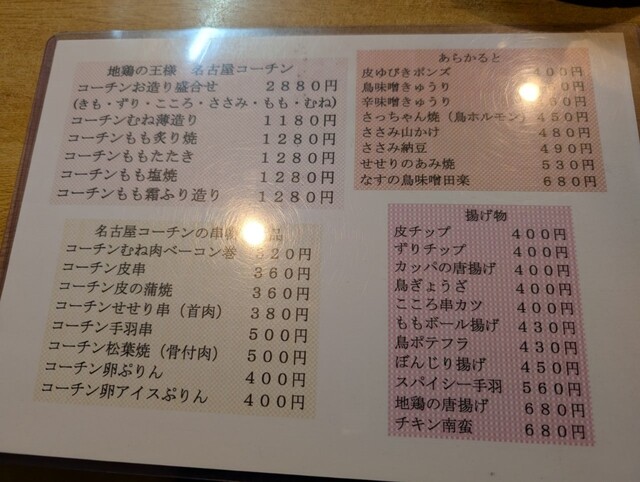 地鶏の王様 名古屋コーチン
コーチンお造り盛合せ 2880円
(きも・ずり・こころ・ささみ・もも・むね)
コーチンむね薄造り 1180円
コーチンもも炙り焼 1280円
コーチンももたたき 1280円
コーチンもも塩焼 1280円
コーチンもも霜ふり造り 1280円
名古屋コーチンの串 品
コーチンむね肉ベーコン巻 320円
コーチン皮串 360円
コーチン皮の蒲焼 360円
コーチンせせり串(首肉) 380円
コーチン手羽串 500円
コーチン松葉焼(骨付肉) 500円
コーチン卵ぷりん 400円
コーチン卵アイスぷりん 400円
あらかると
皮ゆびきポンズ 400円
鳥味噌きゅうり 円
辛味噌きゅうり 50円
さっちゃん焼(鳥ホルモン) 450円
ささみ山かけ 480円
ささみ納豆 490円
せせりのあみ焼 530円
なすの鳥味噌田楽 680円
揚げ物
皮チップ 400円
ずりチップ 400円
カッパの唐揚げ 400円
鳥ぎょうざ 400円
こころ串カツ 400円
ももボール揚げ 430円
鳥ポテフラ 430円
ぼんじり揚げ 450円
スパイシー手羽 560円
地鶏の唐揚げ 680円
チキン南蛮 680円